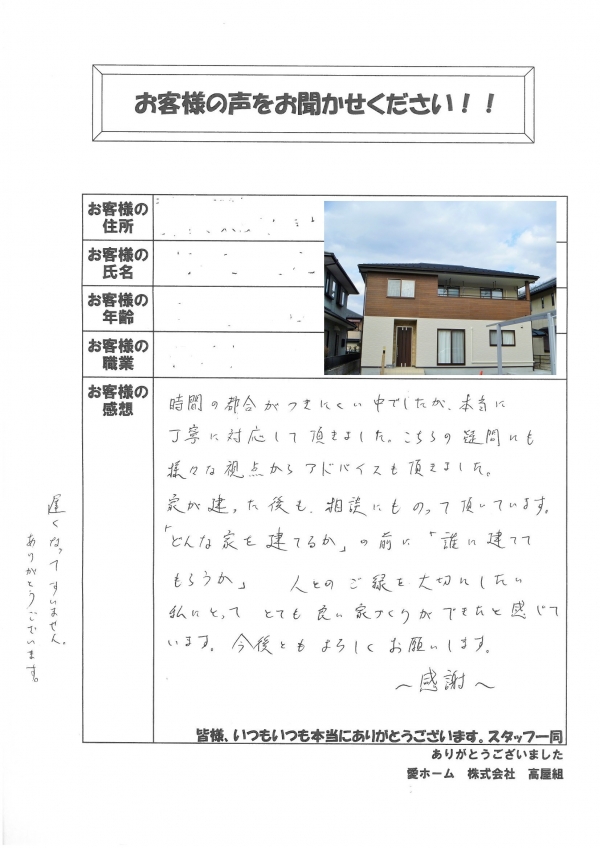 お客様の声をお聞かせください！！
お客様の
住所
お客様の
氏名
お客様の
年齢
お客様の
職業
お客様の
感想
時間の都合がつきにくい中でしたが、本当に
丁寧に対応して頂きました。こちらの疑問にも
様々な視点からアドバイスも頂きました。
家が建った後も、相談にものって頂いています。
「どんな家を建てるか」の前に「誰に建てて
もらうか」　人とのご縁を大切にしたい
私にとって とても良い家づくりができたと感じて
います。今後ともよろしくお願いします。
～感謝～
遅くなってすいません。
ありがとうございます。
皆様、いつもいつも本当にありがとうございます。スタッフ一同
ありがとうございました
愛ホーム　株式会社　高屋組